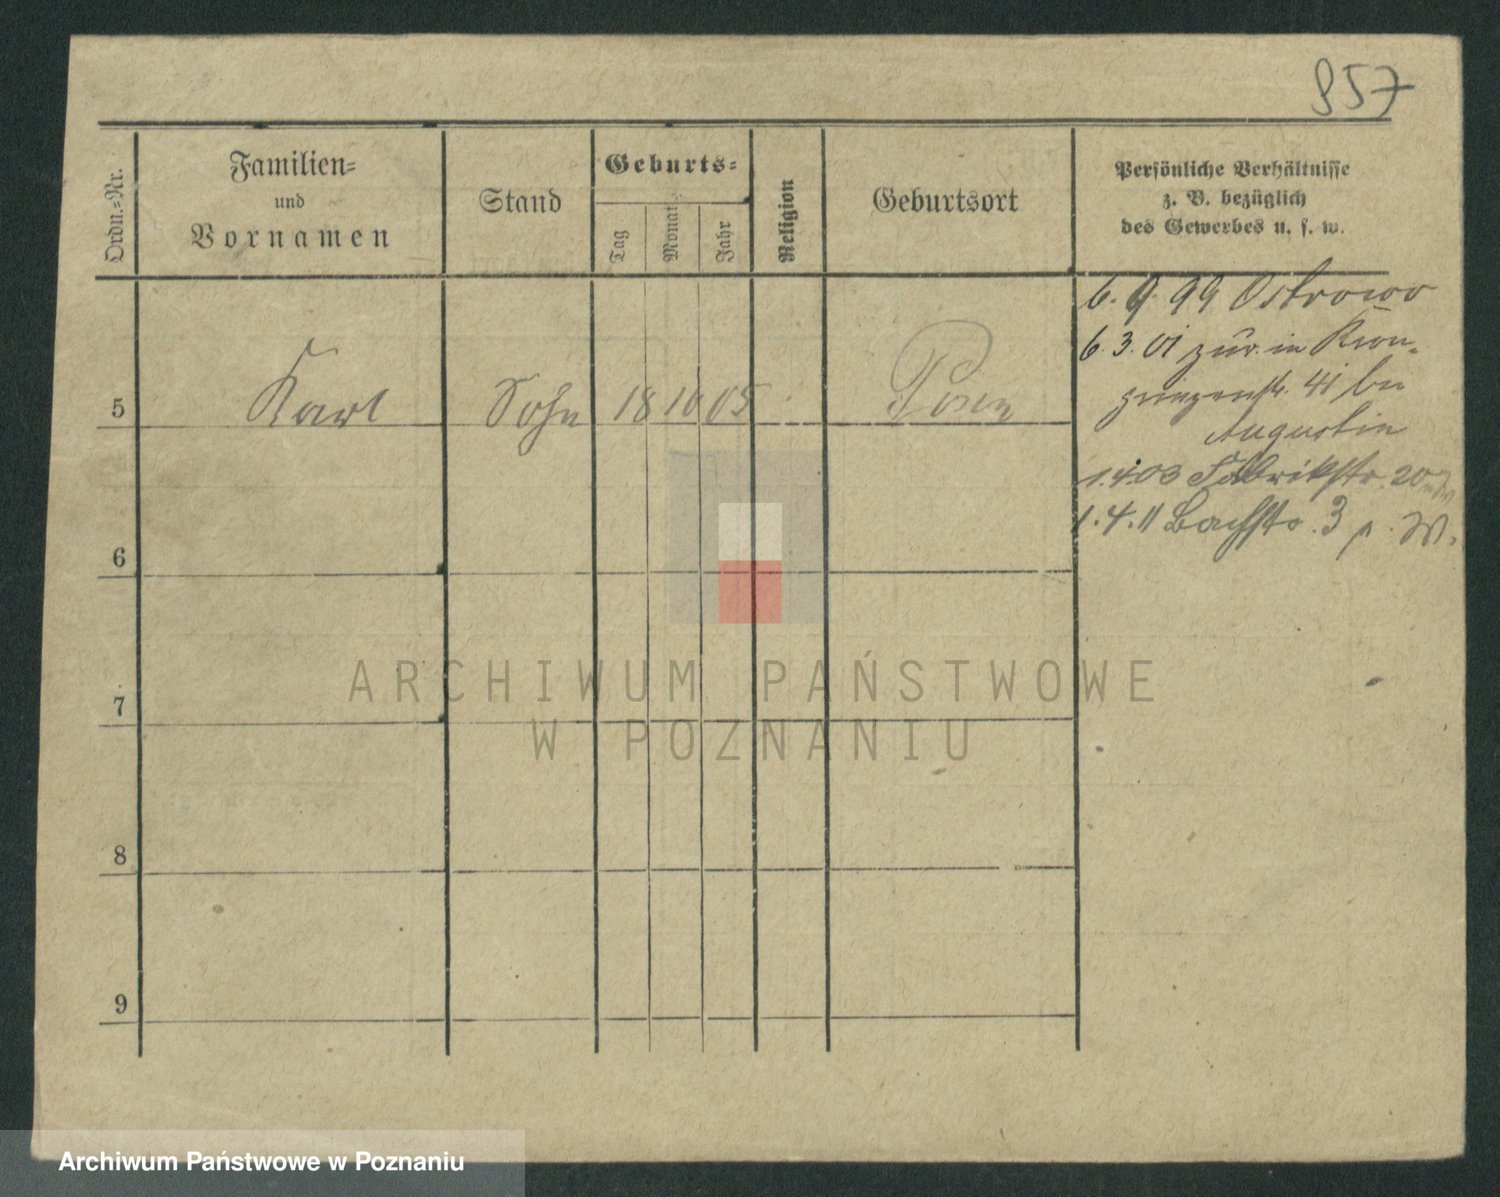 957
Ordn.-Nr.
Familien-
und
Vornamen
Stand
Geburts-
Tag
Monat
Jahr
Religion
Geburtsort
Persönliche Verhältnisse
z. B. bezüglich
des Gewerbes u. s. w.
6. 9. 99 Ostrowo
6. 3. 01 zur. in Kron-
prinzenstr. 41 bei
Augustin
1.4.03 Fabrikstr. 20
1. 4. 11 Bachstr. 3 p. W.
5 Karl Sohn 18 10 05 Posen
6
7
8
9
ARCHIWUM PAŃSTWOWE
W POZNANIU
Archiwum Państwowe w Poznaniu